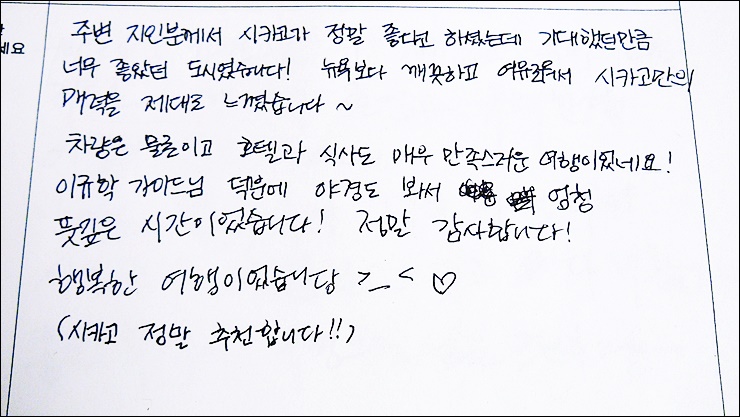 세요
주변 지인분께서 시카고가 정말 좋다고 하셨는데 기대했던만큼
너무 좋았던 도시였습니다! 뉴욕보다 깨끗하고 여유로워서 시카고만의
매력을 제대로 느꼈습니다~
차량은 물론이고 호텔과 식사도 매우 만족스러운 여행이었네요!
이규학 가이드님 덕분에 야경도 봐서 엄청
뜻깊은 시간이었습니다! 정말 감사합니다!
행복한 여행이었습니당 >_< ♡
(시카고 정말 추천합니다!!)